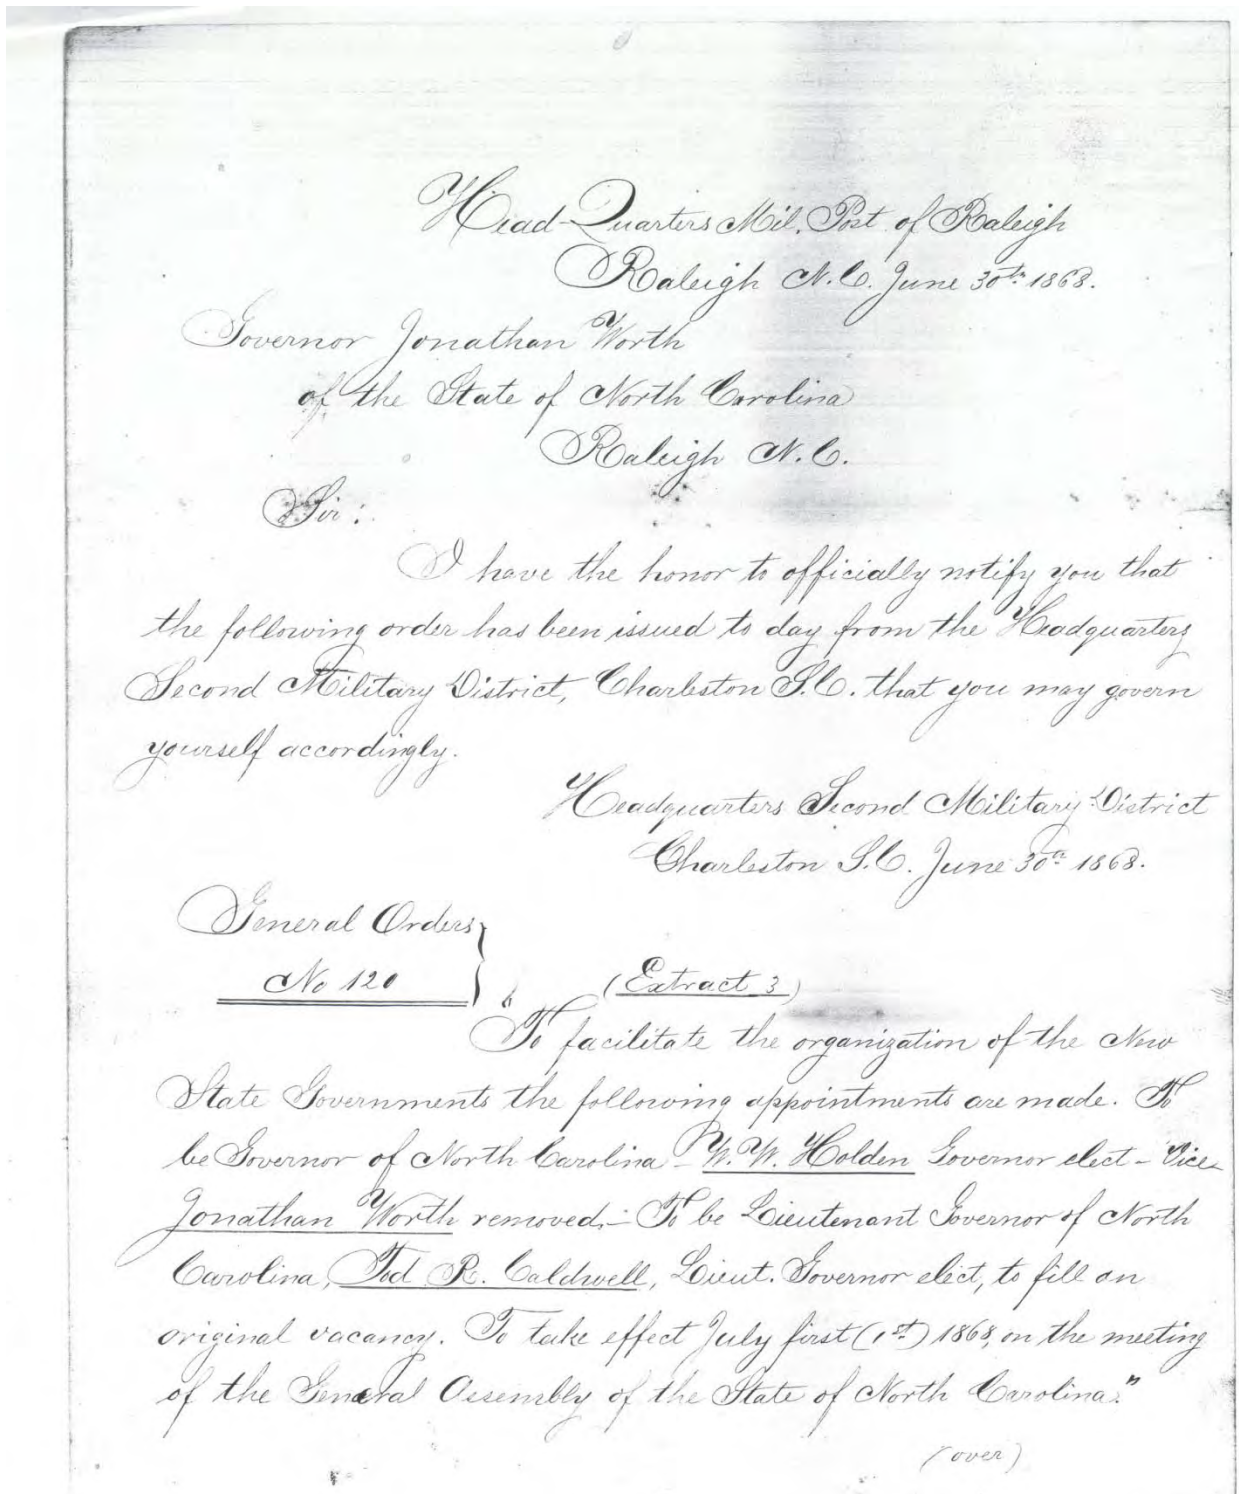 Head-Quarters Mil. Post of Raleigh
Raleigh N.C. June 30th 1868.
Governor Jonathan Worth
of the State of North Carolina
Raleigh N.C.
Sir:
I have the honor to officially notify you that
the following order has been issued to day from the Headquarters
Second Military District, Charleston S.C. that you may govern
yourself accordingly.
Headquarters Second Military District
Charleston S.C. June 30th 1868.
General Orders
No 120
(Extract 3)
To facilitate the organization of the New
State Governments the following appointments are made. To
be Governor of North Carolina - W. W. Holden Governor elect - Vice
Jonathan Worth removed. - To be Lieutenant Governor of North
Carolina, Tod R. Caldwell, Lieut. Governor elect, to fill an
original vacancy. To take effect July first (1st) 1868, on the meeting
of the General Assembly of the State of North Carolina."
(over)